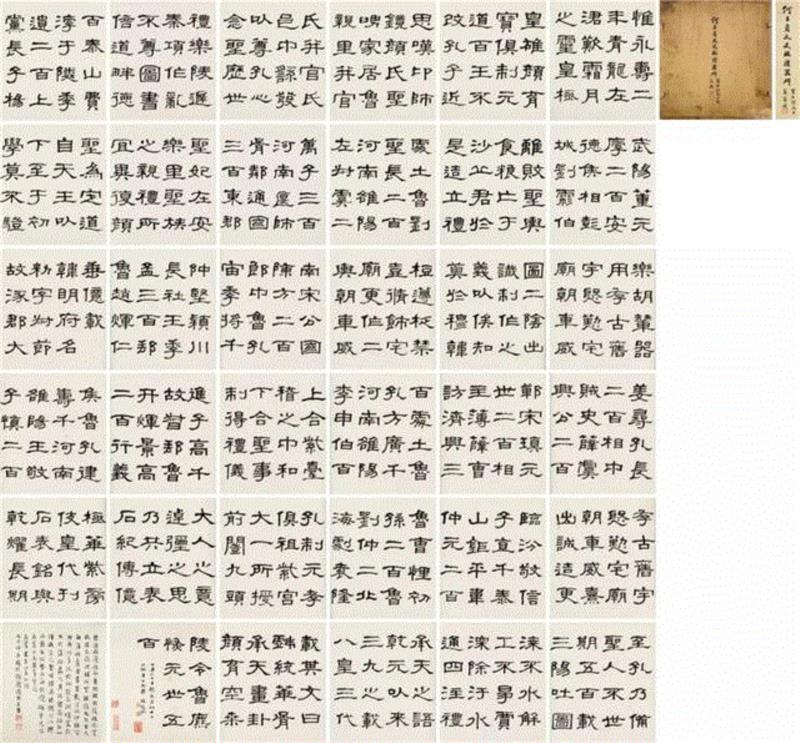 惟永壽二
年青龍在
涒歎霜月
之靈皇極
皇雄顏育
寶俱制元
道百王不
改孔子近
思嘆卬師
鏡顏氏聖
家居魯
親里并官
氏并官氏
邑中繇發
以尊孔心
念聖歷世
禮樂陵遲
秦項作亂
不尊圖書
倍道畔德
百泰山費
淳于隣季
遺二百上
黨長子楊
武陽董元
厚二百安
德侯相彭
城劉彪伯
離敗聖輿
食糧亡于
沙丘君於
是造立禮
處土魯劉
聖長二百
河南雒陽
左叔虞二
萬子三百
河南匽師
胥鄰通國
三百東郡
聖妃在安
樂里聖族
之親禮所
宜異復顏
聖為定道
自天王以
下至于初
學莫不驌
樂胡輦器
用存古舊
宇慇懃宅
廟朝車威
圖二陰出
讖制作之
義以俟知
奠於禮韓
桓籩柉禁
壺脩飾宅
廟更作二
輿朝車威
南宋公國
陳方二百
郎中魯孔
宙季將千
仲堅潁川
長社王季
孟三百邾
魯趙煇仁
垂億載
韓明府名
勑字叔節
故涿郡大
姜尋孔長
二百相中
賊史薛虞
興公二百
鄣宋瑱元
世二百相
主薄薛曹
訪濟興三
百處土魯
孔方廣千
河南雒陽
李申伯百
上合紫臺
稽之中和
下合聖事
制得禮儀
進子高千
故督郵魯
幵煇景高
二百行義
矦魯孔建
壽千河南
雒陽王敬
子慎二百
存古舊宇
慇懃宅廟
朝車威熹
出誠造更
臨汾敬信
子直千泰
山鉅平韋
仲元二百
魯曹悝初
孫二百魯
劉仲二北
海劇袁隆
孔制元孝
俱祖紫宮
大一所授
前闓九頭
大人之意
逴彌之思
乃共立表
石紀傳億
極華紫
伎皇代刊
石表銘與
乾耀長期
至孔乃備
聖人不世
期五百載
三陽吐圖
涷不水解
工不爭賈
深除汙水
通四注禮
承天之語
乾元以來
三九之載
八皇三代
載其文曰
戲統華胥
承天畫卦
顏育空桑
陵令魯
元世五
百